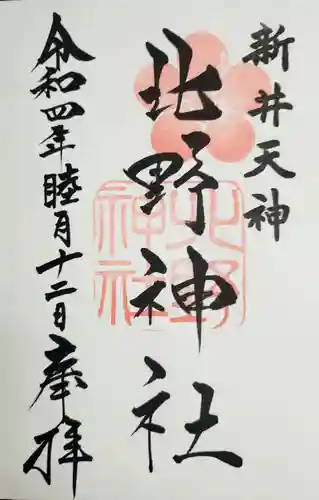 新井天神
北野神社
北野神社
令和四年睦月十二日奉拝